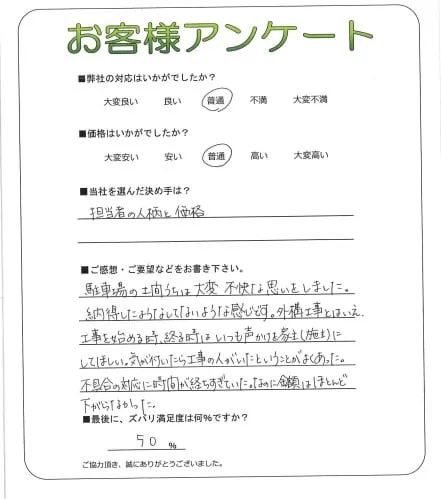 お客様アンケート
■弊社の対応はいかがでしたか?
大変良い 良い 普通 不満 大変不満
■価格はいかがでしたか?
大変安い 安い 普通 高い 大変高い
■当社を選んだ決め手は?
担当者の人柄と価格
■ご感想・ご要望などをお書き下さい。
駐車場の土間うちは大変不快な思いをしました。
納得したようなしてないような感じです。外構工事とはいえ、
工事を始める時、終る時はいつも声かけを家主(施主)に
してほしい。気が付いたら工事の人がいたということがよくあった。
不具合の対応に時間が経ちすぎていた。なのに金額はほとんど
下がらなかった。
■最後に、ズバリ満足度は何%ですか?
50 %
ご協力頂き、誠にありがとうございました。